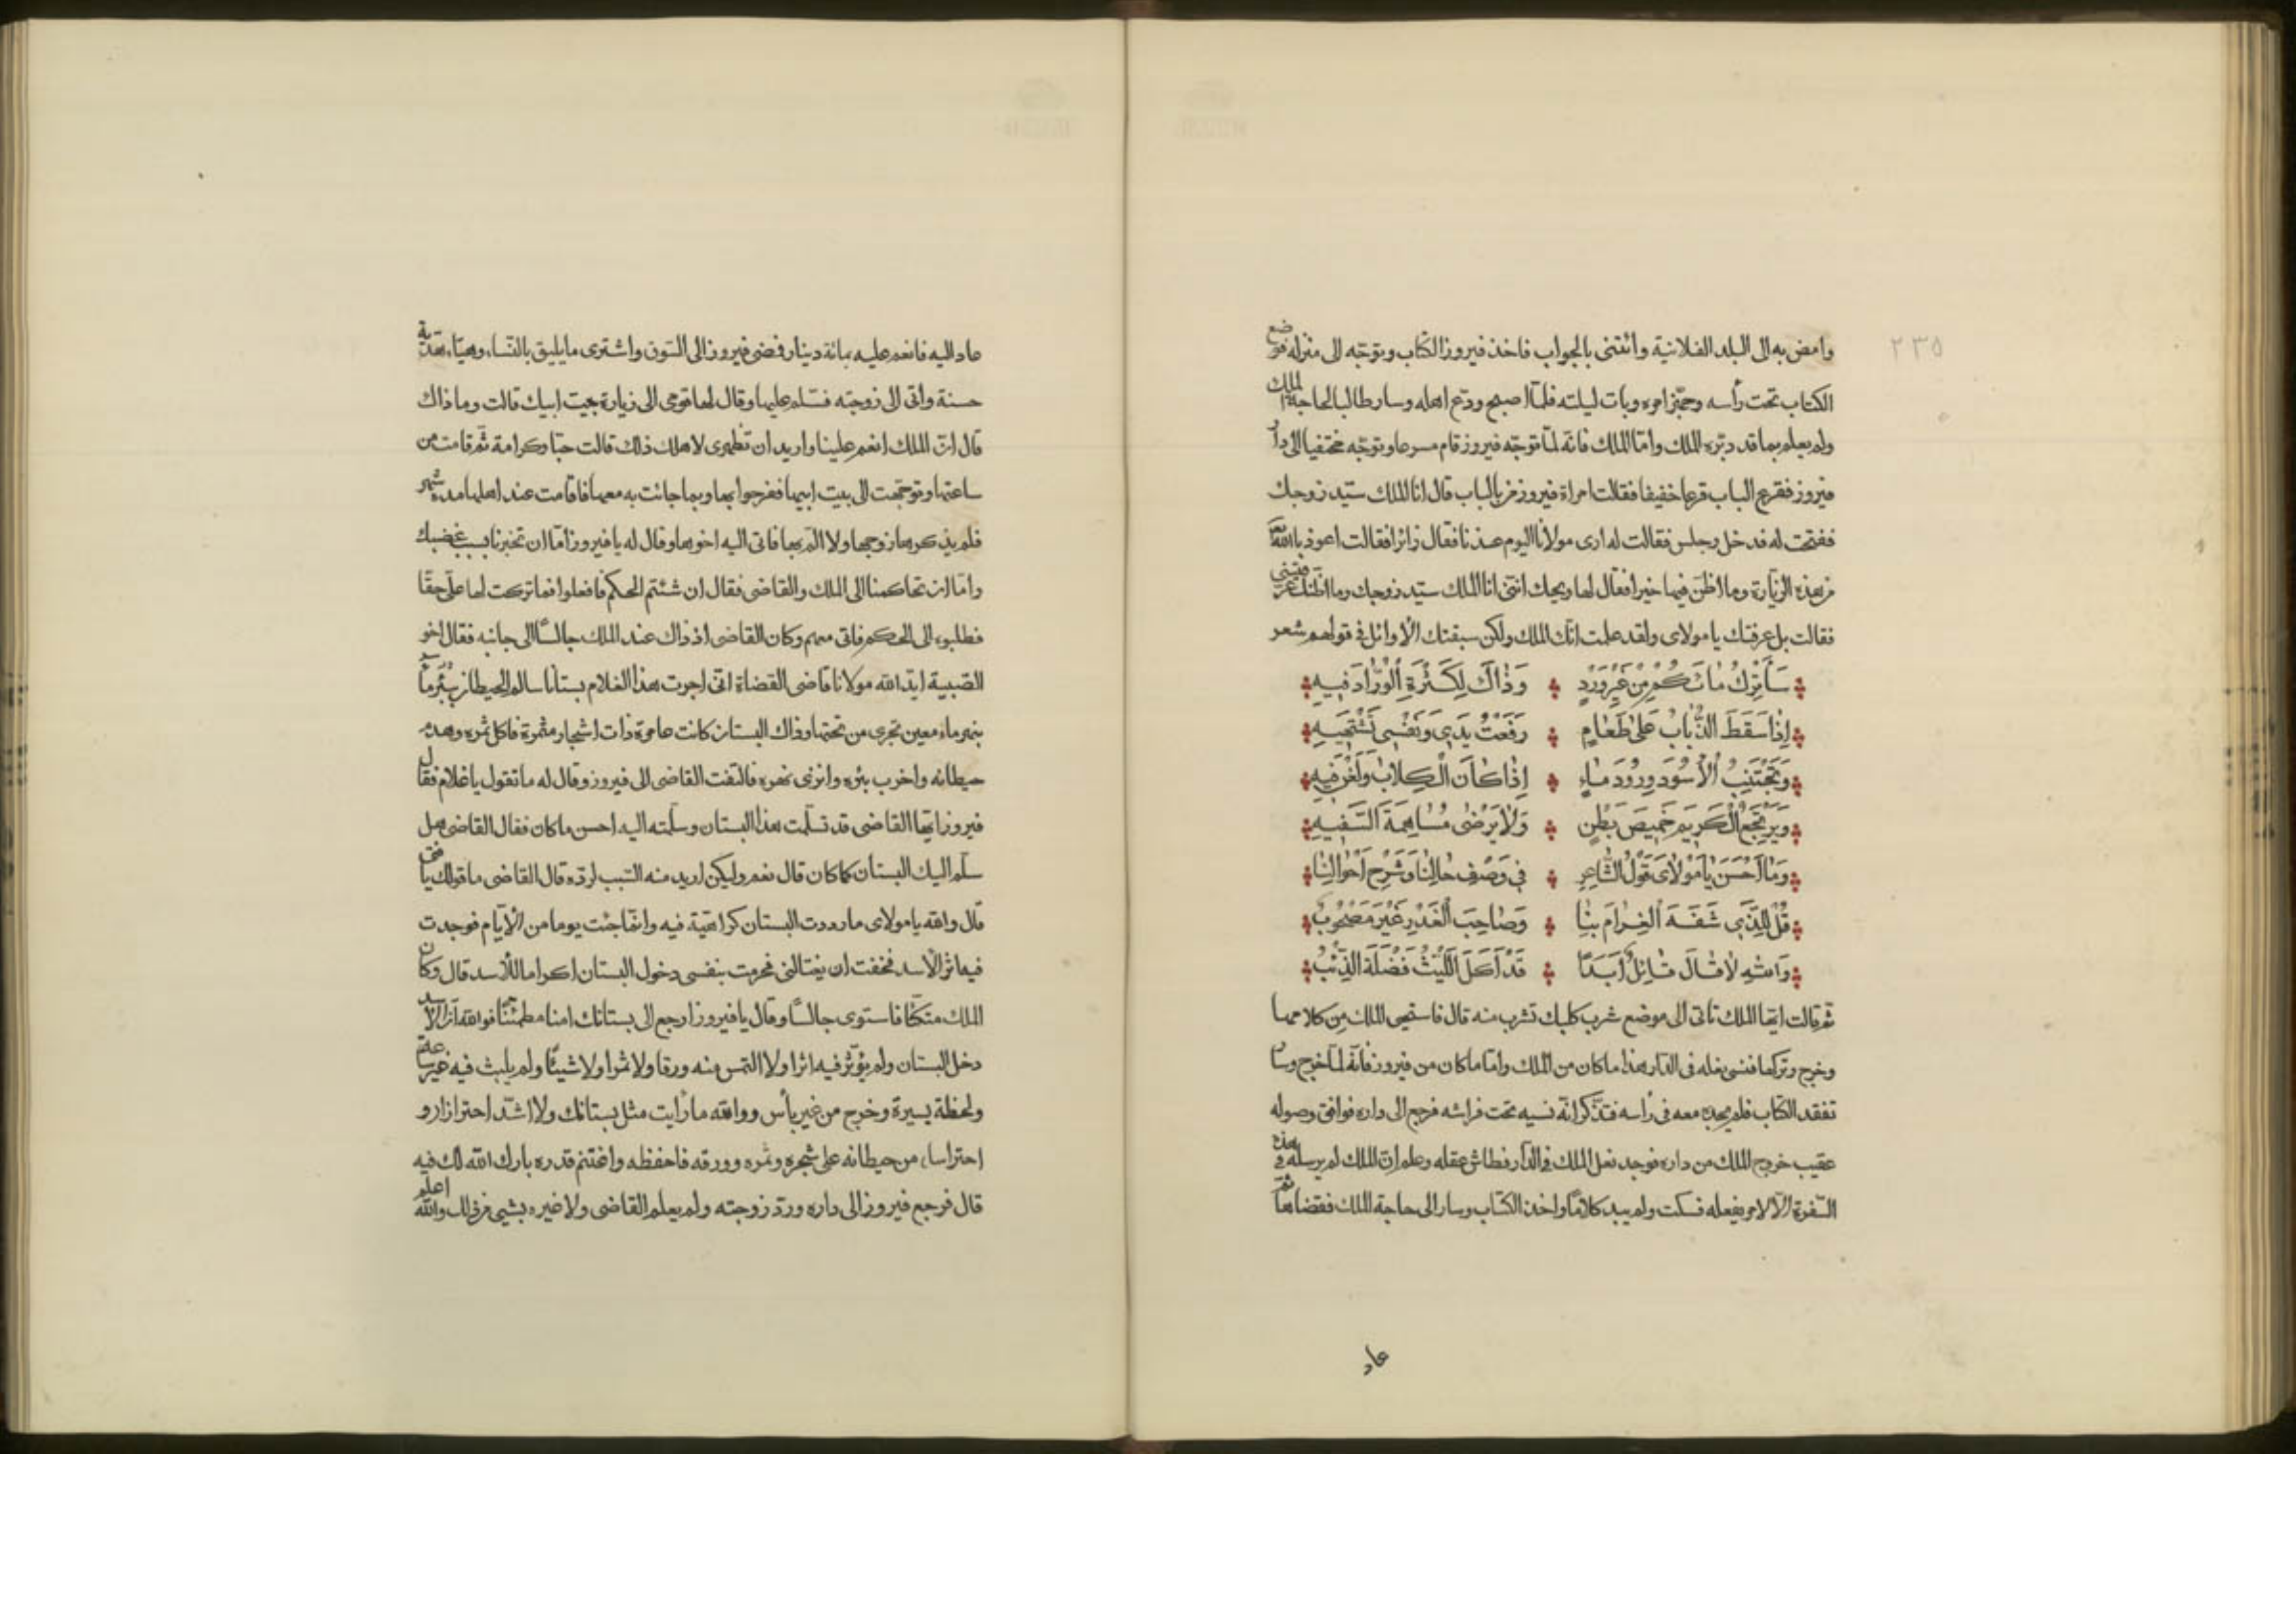 ٢٣٥
وامض به الى البلد الفلانية وائتنى بالجواب فاخذ فيروز الكتاب وتوجّه الى منزله فوضع
الكتاب تحت رأسه وجهّز امره وبات ليلته فلمّا اصبح ودّع اهله وسار طالبا لحاجة الملك
ولم يعلم بما قد دبّره الملك وامّا الملك فانّه لمّا توجّه فيروز قام مسرعا وتوجّه مختفيا الى دار
فيروز فقرع الباب قرعا خفيفا فقالت امراة فيروز من بالباب قال انا الملك سيّد زوجك
ففتحت له فدخل وجلس فقالت له ارى مولانا اليوم عندنا فقال زائرا فقالت اعوذ بالله
من هذه الزيارة وما اظنّ فيها خيرا فقال لها ويحك انّنى انا الملك سيّد زوجك وما اظنّك عرفتينى
فقالت بل عرفتك يا مولاى ولقد علمت انّك الملك ولكن سبقتك الأوائل فى قولهم شعر
سَأَتْرُكُ مَاءَكُمْ مِنْ غَيْرِ وِرْدٍ وَذَاكَ لِكَثْرَةِ الْوُرَّادِ فِيهِ
إِذَا سَقَطَ الذُّبَابُ عَلَى طَعَامٍ رَفَعْتُ يَدِي وَنَفْسِي تَشْتَهِيهِ
وَتَجْتَنِبُ الْأُسُودُ وُرُودَ مَاءٍ إِذَا كَانَ الْكِلَابُ وَلَغْنَ فِيهِ
وَيَرْتَجِعُ الْكَرِيمُ خَمِيصَ بَطْنٍ وَلَا يَرْضَى مُسَاهَمَةَ السَّفِيهِ
وَمَا أَحْسَنَ يَا مَوْلَاىَ قَوْلُ الشَّاعِرِ فِي وَصْفِ حَالِنَا وَشَرْحِ أَحْوَالِنَا
قُلْ لِلَّذِي شَفَّهُ الْغِرَامُ بِنَا وَصَاحِبُ الْغَدْرِ غَيْرُ مَصْحُوبِ
وَاللّٰهِ لَا قَالَ قَائِلٌ أَبَدًا قَدْ أَكَلَ اللَّيْثُ فَضْلَةَ الذِّئْبِ
ثم قالت ايّها الملك تاتى الى موضع شرب كلبك تشرب منه قال فاستحى الملك من كلامها
وخرج وتركها فنسى نعله فى الدار هذا ما كان من الملك وامّا ما كان من فيروز فانّه لمّا خرج وسار
تفقد الكتاب فلم يجده معه فى رأسه فتذكّر انّه نسيه تحت فراشه فرجع الى داره فوافق وصوله
عقيب خروج الملك من داره فوجد نعل الملك فى الدار فطاش عقله وعلم ان الملك لم يرسله فى هذه
السّفرة الّا لامر يفعله فسكت ولم يبد كلامًا واخذ الكتاب وسار الى حاجة الملك فقضاها ثمّ
عاد
عاد اليه فانعم عليه بمائة دينار فمضى فيروز الى السّوق واشترى ما يليق بالنّساء وهيّاء هديّة
حسنة واتى الى زوجته فسلّم عليها وقال لها قومى الى زيارة بيت ابيك قالت وما ذاك
قال انّ الملك انعم علينا واريد ان تظهرى لاهلك ذلك قالت حبّا وكرامة ثمّ قامت من
ساعتها وتوجّهت الى بيت ابيها ففرحوا بها وبما جائت به معها فاقامت عند اهلها مدة شهر
فلم يذكرها زوجها ولا المّ بها فاتى اليه اخوها وقال له يا فيروز امّا ان تخبرنا بسبب غضبك
وامّا ان تحاكمنا الى الملك والقاضى فقال ان شئتم الحكم فافعلوا فما تركت لها علىّ حقّا
فطلبوه الى الحكم فاتى معهم وكان القاضى اذ ذاك عند الملك جالسًا الى جانبه فقال اخو
الصّبية ايّد الله مولانا قاضى القضاة انّى اجرت هذا الغلام بستانا سالم الحيطان ببئر ماء
بنهر ماء معين تجرى من تحتها وذاك البستان كانت عامرة ذات اشجار مثمرة فاكل ثمره وهدم
حيطانه واخرب بئره وانزى نهره فالتفت القاضى الى فيروز وقال له ما تقول يا غلام فقال
فيروز ايّها القاضى قد تسلّمت هذا البستان وسلّمته اليه احسن ما كان فقال القاضى هل
سلّم اليك البستان كما كان قال نعم ولكن اريد منه السّبب لردّه قال القاضى ما قولك يا فتى
قال والله يا مولاى ما رددت البستان كراهيّة فيه وانّما جئت يوما من الأيّام فوجدت
فيها اثر الأسد فخفت ان يغتالنى فحرمت بنفسى دخول البستان اكراما للأسد قال وكان
الملك متكئا فاستوى جالسًا وقال يا فيروز ارجع الى بستانك امنا مطمئنًّا فوالله انّ الأسد
دخل البستان ولم يؤثّر فيه اثرا ولا التمس منه ورقا ولا ثمرا ولا شيئًا ولم يلبث فيه غير ساعة
ولحظة يسيرة وخرج من غير بأس ووالله ما رأيت مثل بستانك ولا اشدّ احترازا و
احتراسا من حيطانه على شجره وثمره وورقه فاحفظه واغتنم قدره بارك الله لك فيه
قال فرجع فيروز الى داره وردّ زوجته ولم يعلم القاضى ولا غيره بشيى من ذلك والله اعلم